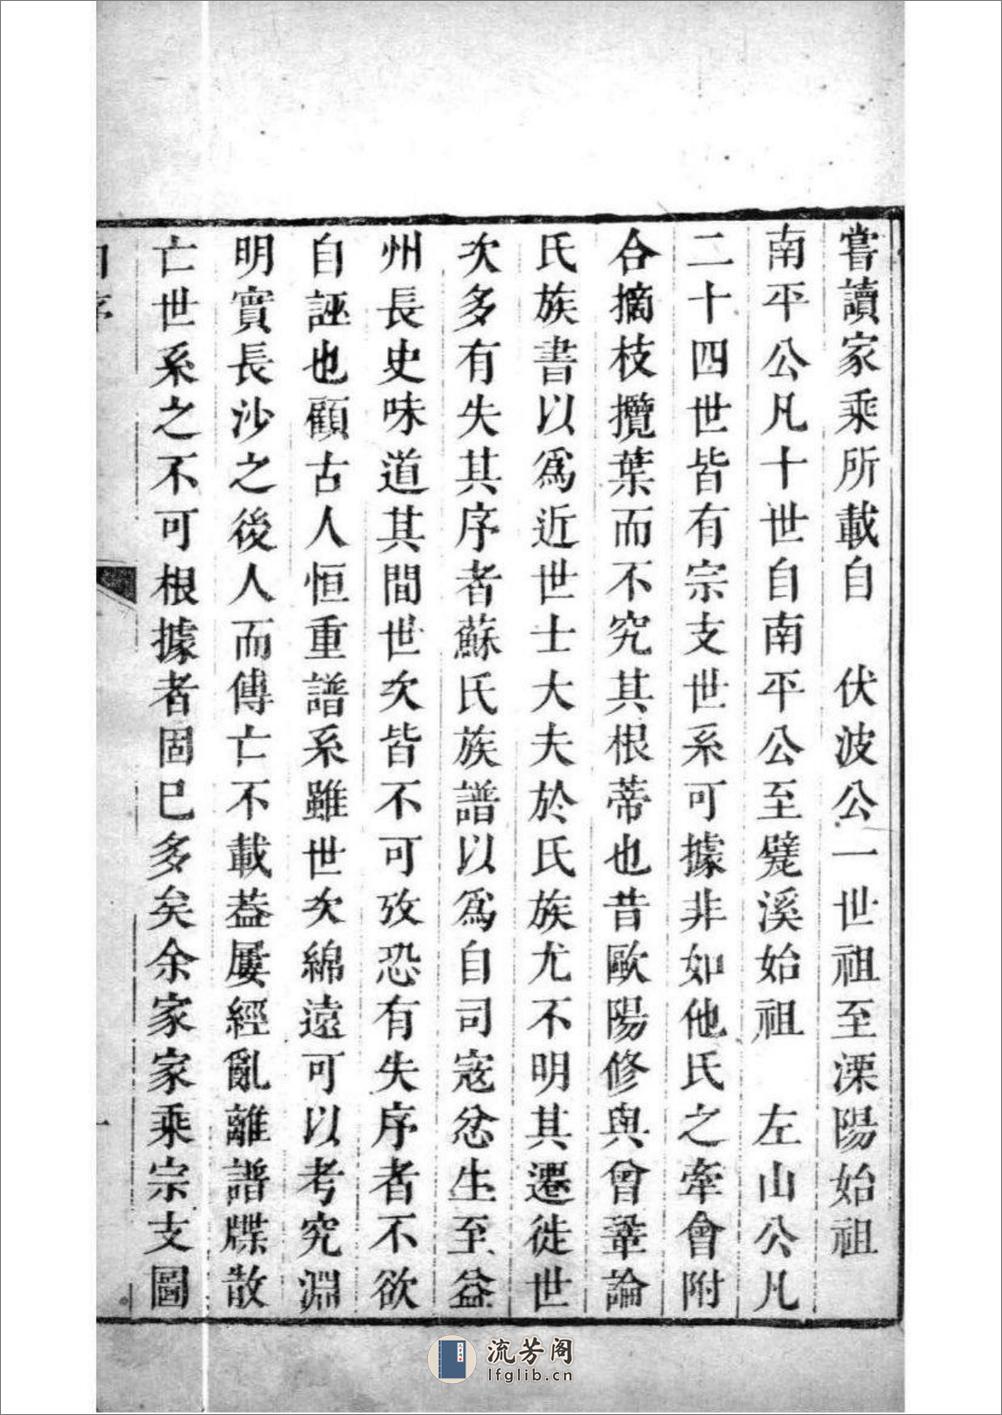 嘗讀家乘所載自　伏波公一世祖至溧陽始祖
南平公凡十世自南平公至甓溪始祖　左山公凡
二十四世皆有宗支世系可據非如他氏之牽會附
合摘枝攬葉而不究其根蒂也昔歐陽修與曾鞏論
氏族書以爲近世士大夫於氏族尤不明其遷徙世
次多有失其序者蘇氏族譜以爲自司寇忿生至益
州長史味道其間世次皆不可攷恐有失序者不欲
自誣也顧古人恒重譜系雖世次綿遠可以考究淵
明實長沙之後人而傳亡不載葢屢經亂離譜牒散
亡世系之不可根據者固已多矣余家家乘宗支圖
一
流芳阁
lfglib.cn